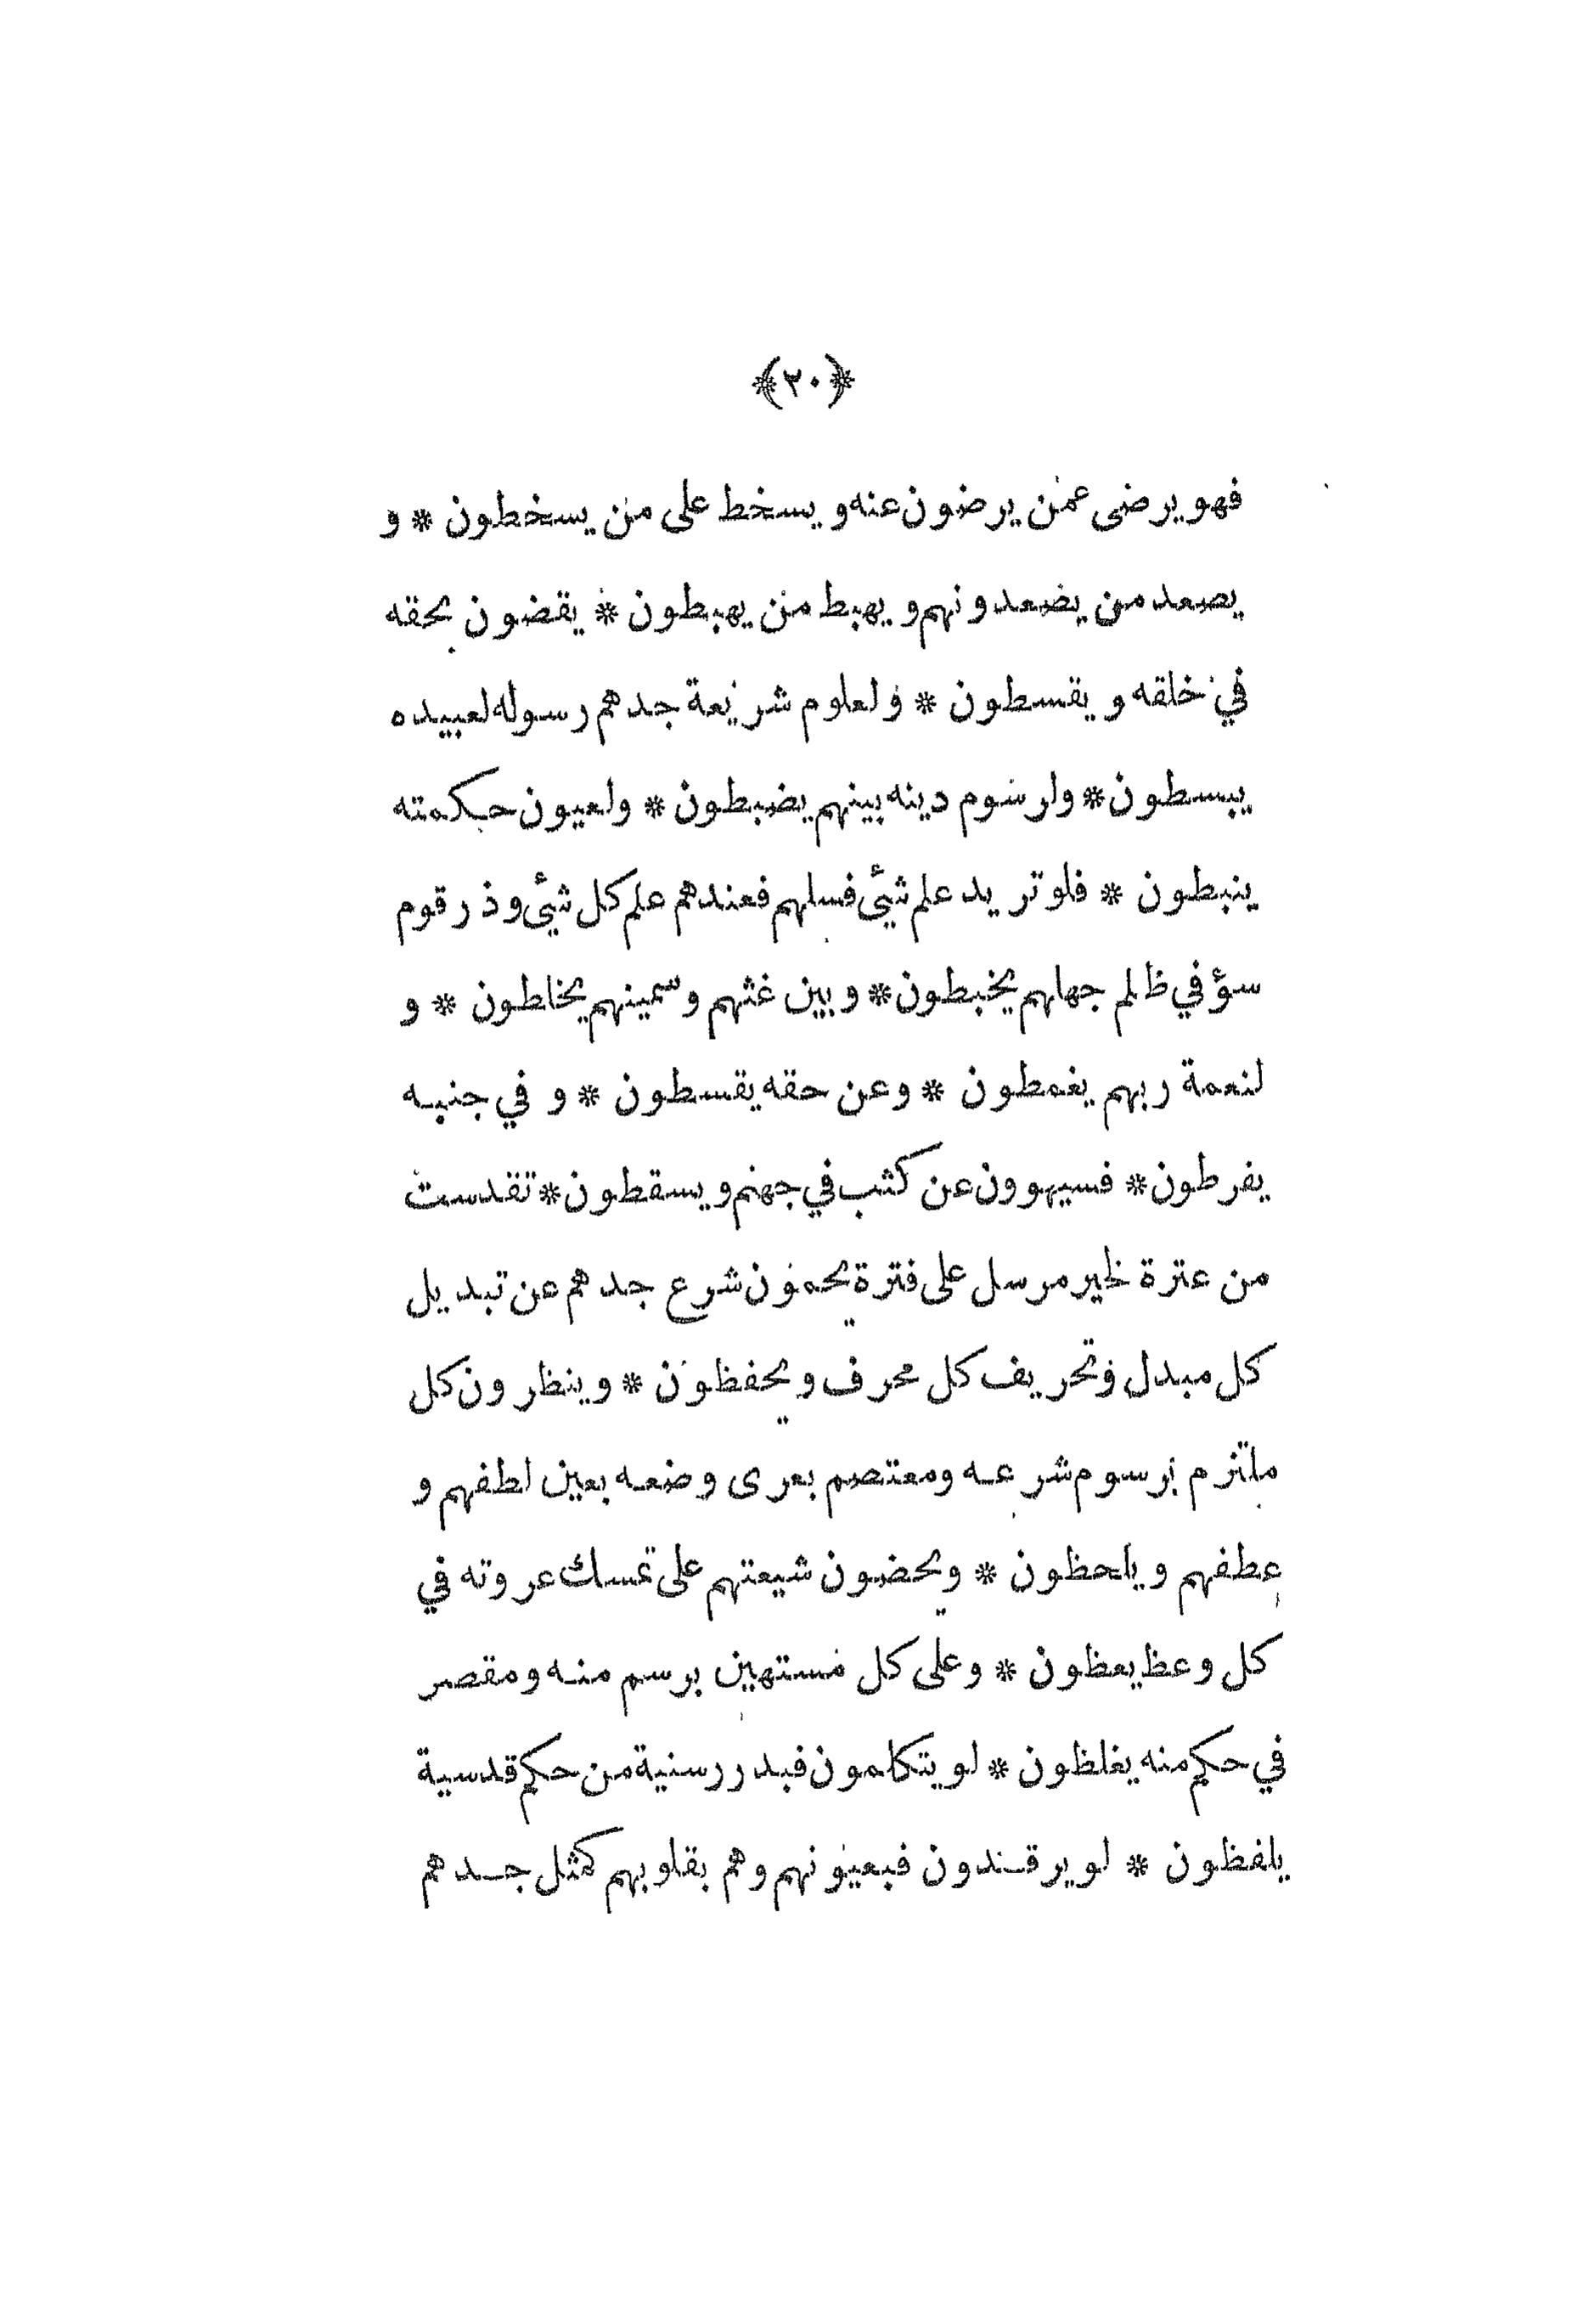 ﴿٢٠﴾
فهو يرضى عمن يرضون عنه و يسخط على من يسخطون * و
يصعد من يصعدونهم و يهبط من يهبطون * يقضون بحقه
في خلقه و يقسطون * ولعلوم شريعة جدهم رسوله لعبيده
يبسطون * ولرسوم دينه بينهم يضبطون * ولعيون حكمته
ينبطون * فلو تريد علم شيئ فسلهم فعندهم علم كل شيئ و ذر قوم
سؤ في ظلم جهلهم يخبطون * و بين غثهم و سمينهم يخلطون * و
لنعمة ربهم يغمطون * وعن حقه يقسطون * و في جنبه
يفرطون * فسيهوون عن كثب في جهنم و يسقطون * تقدست
من عترة لخير مرسل على فترة يحمون شرع جدهم عن تبديل
كل مبدل وتحريف كل محرف و يحفظون * و ينظرون كل
ملتزم برسوم شرعه ومعتصم بعرى وضعه بعين لطفهم و
عطفهم و يلحظون * ويحضون شيعتهم على تمسك عروته في
كل وعظ يعظون * وعلى كل مستهين برسم منه و مقصر
في حكم منه يغلظون * لو يتكلمون فبدرر سنية من حكم قدسية
يلفظون * لو يرقدون فبعيونهم وهم بقلوبهم كمثل جدهم